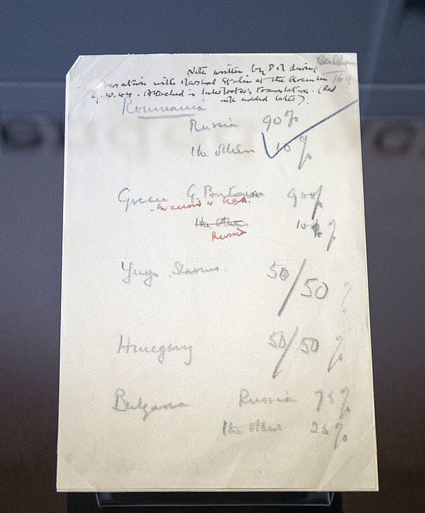 Note written by P.M. during
conversation with Marshal Stalin at the Kremlin
Attached is Interpreter's translation. (Red
ink added later).
Roumania
Russia 90%
The others 10%
Greece G. Britain 90%
in accord w U.S.A.
The Others 10%
Russia
Yugo Slavia 50/50%
Hungary 50/50%
Bulgaria Russia 75%
The others 25%